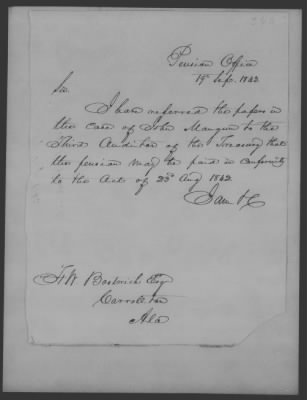 Pension Office
19 Sept. 1842
Sir.
I have referred the papers in
the case of John Mangum to the
Third Auditor of the Treasury that
the pension may be paid in conformity
to the Act of 23d Aug 1842.
I am &c
Esq
Carrolton
Ala